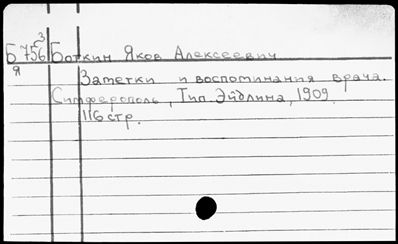 Б 756³ Боткин Яков Алексеевич
я
Заметки и воспоминания врача.
Симферополь, Тип. Эйдлина, 1909.
116 стр.